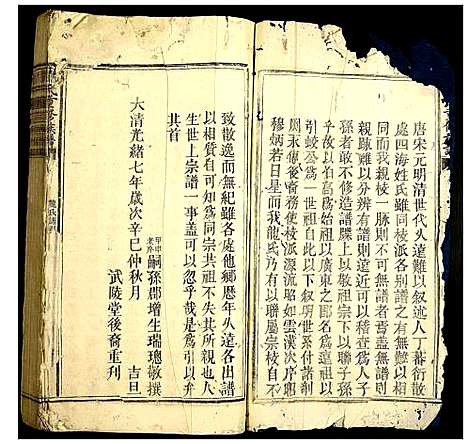 唐宋元明清世代久遠難以叙述人丁蕃衍散
處四海姓氏雖同棱派各别譜之有無斷不
同而我親棱一脉則不可無譜者焉盖無譜
親雖以分辨有譜則遠近可以稽查爲人子
孫者敢不修造譜牒上以敬祖宗下以聯子孫
故以伯
引岐公爲一世祖自此以下叙明世系付諸剞
劂永垂後裔務使枝派源流昭如雲漢次序昆
穆炳若日星而我龍氏乃有以聯屬宗棱自不
致散逸而無紀雖各處他鄉歷年久遠各出譜
以相質亦可知爲同宗共祖不失其所親也人
生世上宗譜一事盖可以忽乎哉是爲引以弁
其首
大清光緒七年歲次辛巳仲秋月 吉旦
嗣孫郡增生瑞璁敬撰
武陵堂後裔重刋